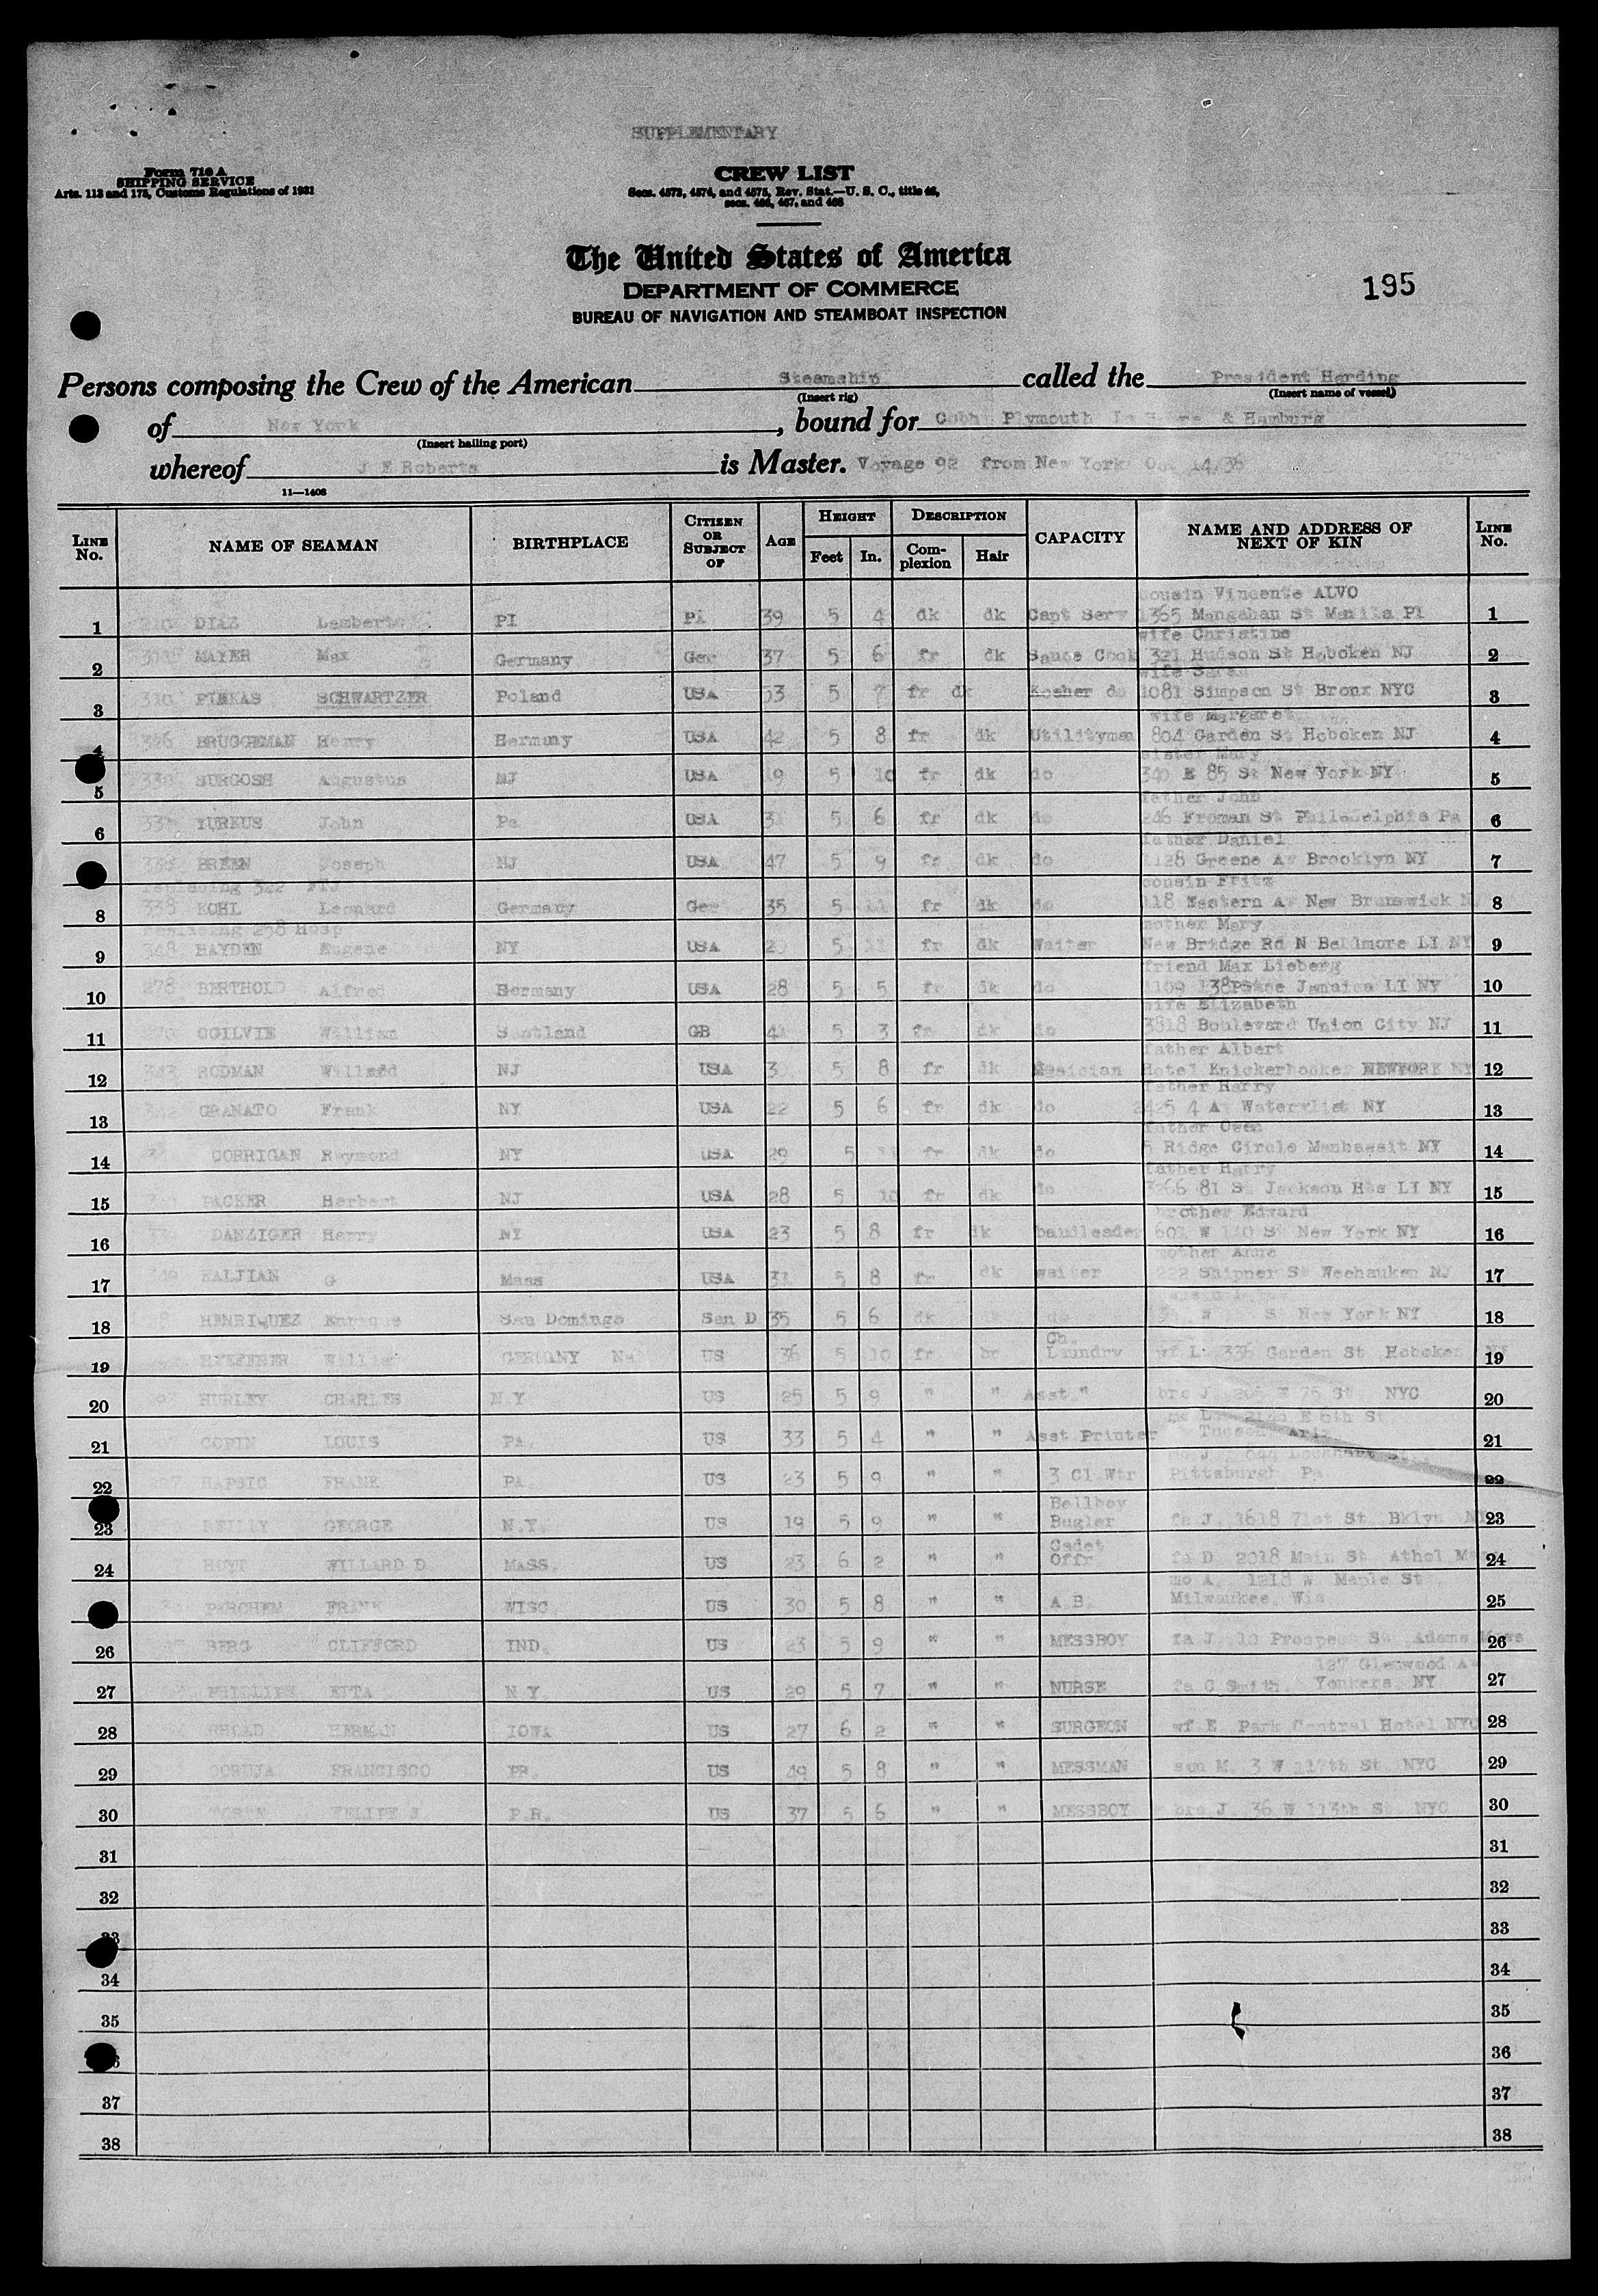 SUPPLEMENTARY
Form 710 A
SHIPPING SERVICE
Arts. 113 and 175, Customs Regulations of 1931
CREW LIST
Secs. 4573, 4574, and 4575, Rev. Stat.—U. S. C., title 46,
secs. 466, 467, and 468
The United States of America
DEPARTMENT OF COMMERCE
BUREAU OF NAVIGATION AND STEAMBOAT INSPECTION
195
Persons composing the Crew of the American Steamship called the President Harding
(Insert rig) (Insert name of vessel)
of New York, bound for Cobh Plymouth & Hamburg
(Insert hailing port)
whereof J E Roberts is Master. Voyage 92 from New York Oct 14/36
11—1408
LINE No. NAME OF SEAMAN BIRTHPLACE CITIZEN OR SUBJECT OF AGE HEIGHT Feet In. DESCRIPTION Complexion Hair CAPACITY NAME AND ADDRESS OF NEXT OF KIN LINE No.
cousin Vincente ALVO
1 DIAZ Lamberto PI PI 39 5 4 dk dk Capt Serv 1365 Mangahan St Manila PI 1
wife Christine
2 MAYER Max Germany Ger 37 5 6 fr dk Sauce Cook 321 Hudson St Hoboken NJ 2
wife Sarah
3 330 PINKAS SCHWARTZER Poland USA 53 5 7 fr dk Kosher do 1081 Simpson St Bronx NYC 3
wife Margaret
4 326 BRUGGEMAN Henry Bermuny USA 42 5 8 fr dk Utilityman 804 Garden St Hoboken NJ 4
sister Mary
5 SURGOSH Augustus NJ USA 19 5 10 fr dk do 340 E 85 St New York NY 5
father John
6 YURKUS John Pa USA 5 6 fr dk do 246 Froman St Philadelphia Pa 6
father Daniel
BREEN Joseph NJ USA 47 5 9 fr dk do 1128 Greene Av Brooklyn NY 7
replacing 342 cousin Fritz
8 338 KOHL Leonard Germany Ger 35 5 11 fr dk do 118 Eastern Av New Brunswick 8
replacing 258 Hosp mother Mary
9 348 HAYDEN Eugene NY USA 5 11 fr dk Waiter New Bridge Rd N Bellmore LI NY 9
friend Max Lieberg
10 278 BERTHOLD Alfred Bermany USA 28 5 5 fr dk do 1109 Jamaica LI NY 10
wife Elizabeth
11 OGILVIE William Scotland GB 41 5 3 fr dk do 3818 Boulevard Union City NJ 11
father Albert
12 343 RODMAN Willard NJ USA 5 8 fr dk Musician Hotel Knickerbocker NEWYORK NY 12
father Harry
13 GRANATO Frank NY USA 22 5 6 fr dk do 2425 4 Av Watervliet NY 13
father Owen
14 CORRIGAN Raymond NY USA 29 5 11 fr dk do 5 Ridge Circle Manhassit NY 14
father Harry
15 PACKER Herbert NJ USA 28 5 10 fr dk do 3766 81 St Jackson Hts LI NY 15
brother Edward
16 DANZIGER Harry NY USA 23 5 8 fr dk bandleader 601 W 110 St New York NY 16
mother Anna
17 BALJIAN G Mass USA 31 5 8 fr dk waiter 222 Shipper St Weehauken NJ 17
18 HENRIQUEZ Enrique San Domingo San D 35 5 6 dk St New York NY 18
Ch.
19 Willie GERMANY Na US 36 5 10 fr br Laundry wf L. 336 Garden St Hoboken 19
20 HURLEY CHARLES N.Y US 25 5 9 " " Asst. " bro J. 205 E 75 St NYC 20
mo L. E 6th St
21 COFIN LOUIS PA. US 33 5 4 " " Asst Printer Tucson Ariz 21
mo J. Lockhart St.
22 HAPSIC FRANK PA. US 23 5 9 " " 3 Cl Wtr Pittsburgh Pa 22
Bellboy
23 REILLY GEORGE N.Y. US 19 5 9 " " Bugler fa J. 1618 71st St Bklyn 23
Cadet
24 HOYT WILLARD D MASS. US 23 6 2 " " Offr fa D. 2018 Main St Athol Mass 24
mo A. 1218 W Maple St
PARCHEM FRANK WISC. US 30 5 8 " " A.B. Milwaukee. Wis 25
26 BERG CLIFFORD IND. US 23 5 9 " " MESSBOY fa J. 10 Prospect St Adams Mass 26
127 Glenwood Av
27 PHILLIPS ETTA N.Y. US 29 5 7 " " NURSE fa C Smith. Yonkers NY 27
28 RHOAD HERMAN IOWA US 27 6 2 " " SURGEON wf E. Park Central Hotel NYC 28
29 CORUJA FRANCISCO PR. US 49 5 8 " " MESSMAN son M. 3 W 117th St NYC 29
30 FELIPE J P.R. US 37 5 6 " " MESSBOY bro J. 36 W 113th St NYC 30
31 31
32 32
33 33
34 34
35 35
36
37 37
38 38